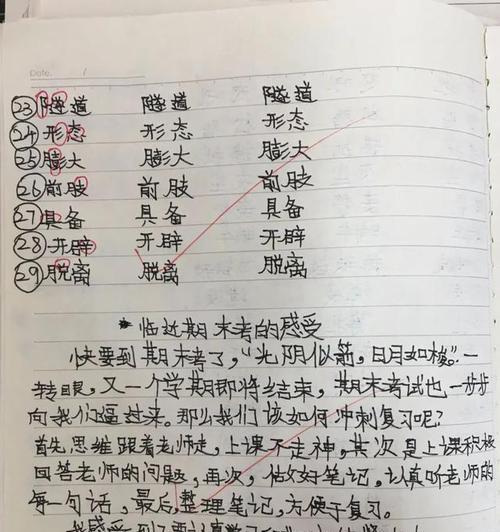 Date. /
㉓隧道 隧道 隧道
㉔形态 形态 形态
㉕膨大 膨大 膨大
㉖前肢 前肢 前肢
㉗具备 具备 具备
㉘开辟 开辟 开辟
㉙脱离 脱离 脱离
*临近期末考的感受
快要到期末考了，“光阴似箭，日月如梭”。一
转眼，又一个学期即将结束，期末考试也一步步
向我们逼过来。那么我们该如何冲刺复习呢？
首先思维跟着老师走，上课不走神，其次是上课积极
回答老师的问题，再次，做好笔记，认真听老师的
每一句话，最后，整理笔记，方便于复习。